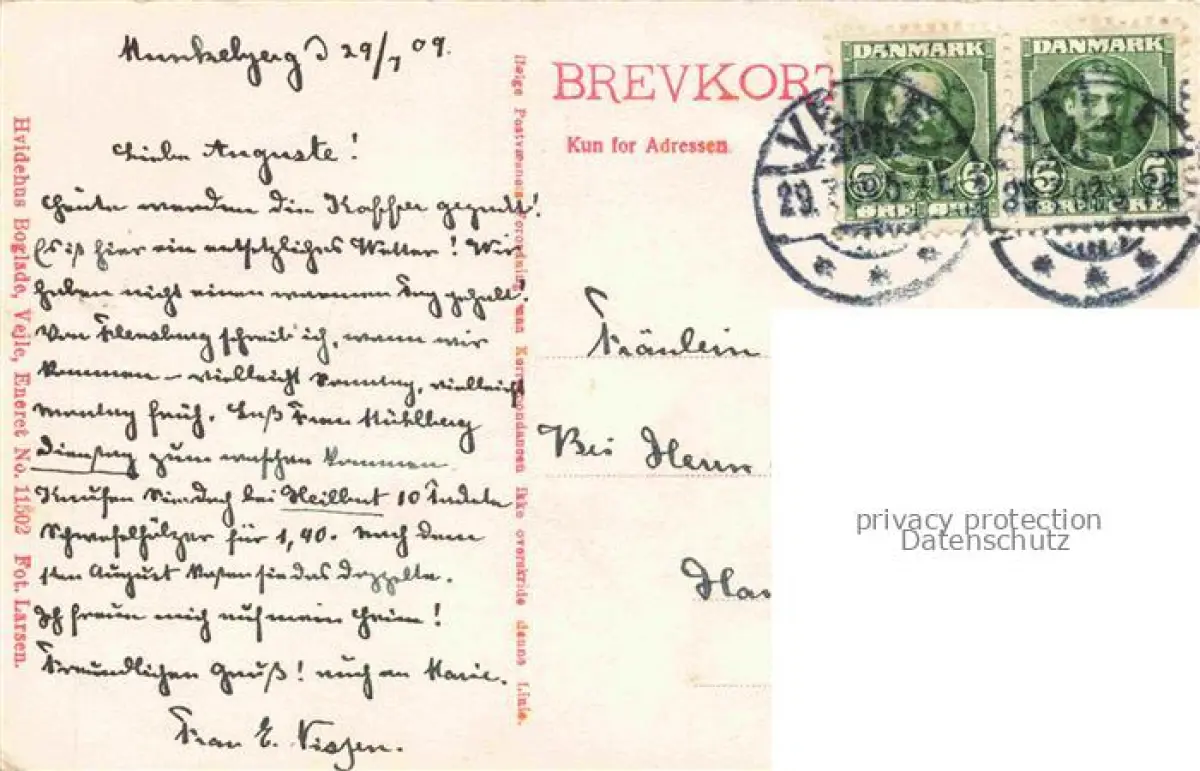 Munkebjerg d 29/7 09.
Liebe Auguste!
Heute werden die Koffer gepackt!
Es ist hier ein entsetzliches Wetter! Wir
haben nicht einen warmen Tag gehabt!
Von Flensburg schreib ich, wann wir
kommen – vielleicht Sonntag, vielleicht
Montag früh. Laß Frau Mühlberg
Dienstag zum waschen kommen
Kaufen Sie doch bei Heilbut 10 Packete
Schwefelhölzer für 1,90. Nach dem
1sten August kosten sie das Doppelte.
Ich freue mich auf mein Heim!
Freundlichen Gruß! auch an Marie.
Frau E. Nissen.
Hvidehus Boglade, Vejle, Eneret No. 11502 Fot. Larsen.
ifølge Postvæsenets Forordning maa Korrespondancen ikke overskride denne Linie.
BREVKORT
Kun for Adressen.
DANMARK
5 5
ØRE ØRE
DANMARK
5 5
ØRE ØRE
VEJLE
29.
VEJLE
Fräulein
Bei Herrn
Ha
privacy protection
Datenschutz